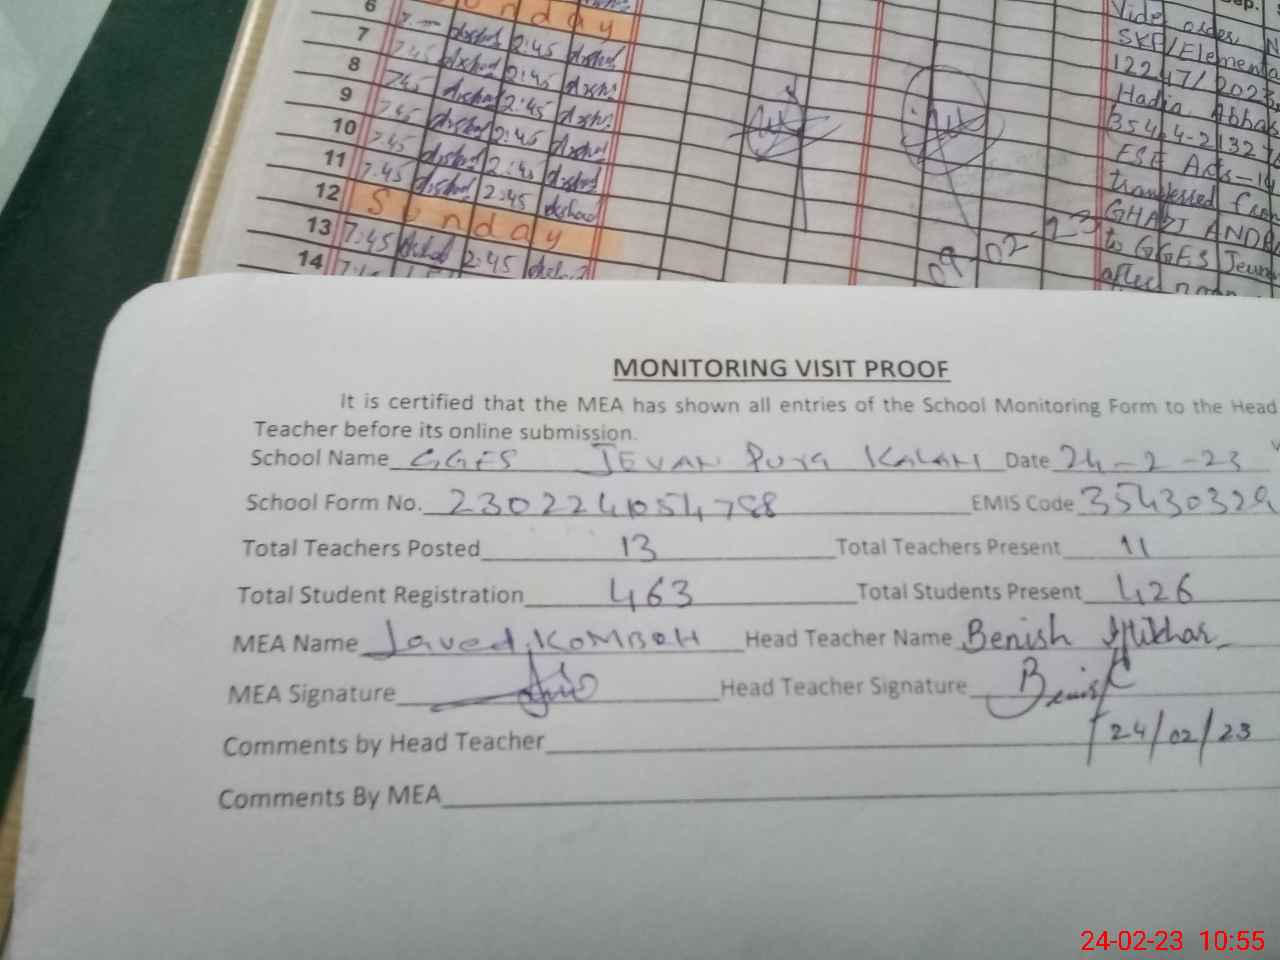 6
7 2:45
7:45 2:45
8
7:45 2:45
9
7:45 2:45
10
7:45 2:45
11
7:45 2:45
12 Sunday
13 7:45 2:45
14
Vide order
SKP/Elementa
12247/2023
Hadia Abbas
35404-21327
ESE Arts-14
transferred from
GHAZI ANDR
to GGES Jeun
09-02-23
MONITORING VISIT PROOF
It is certified that the MEA has shown all entries of the School Monitoring Form to the Head
Teacher before its online submission.
School Name GGES JEVAN Pura KALAN Date 24-2-23
School Form No. 2302241054788 EMIS Code 35430329
Total Teachers Posted 13 Total Teachers Present 11
Total Student Registration 463 Total Students Present 426
MEA Name Javed KOMBOH Head Teacher Name Benish Iftikhar
MEA Signature Head Teacher Signature Benish
24/02/23
Comments by Head Teacher
Comments By MEA
24-02-23 10:55